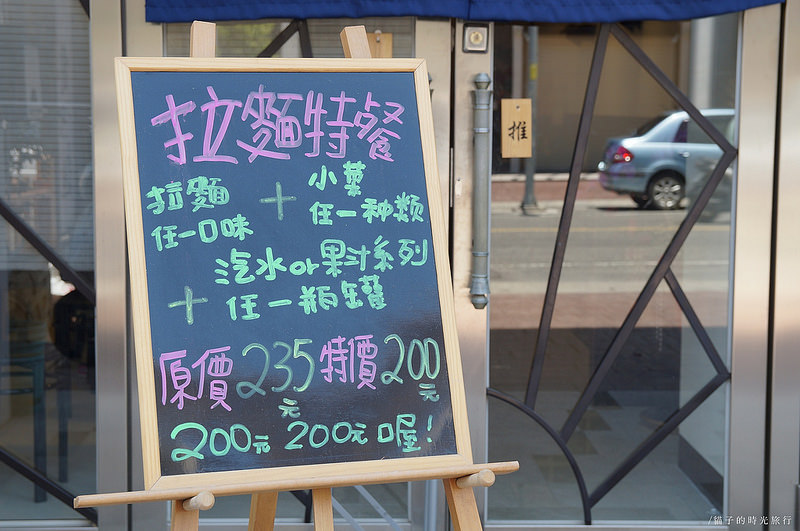 拉麵特餐
拉麵 + 小菜
任一口味 任一种類
汽水or果汁系列
+ 任一瓶罐
原價235元 特價200元
200元 200元 喔!
推
/貓子的時光旅行